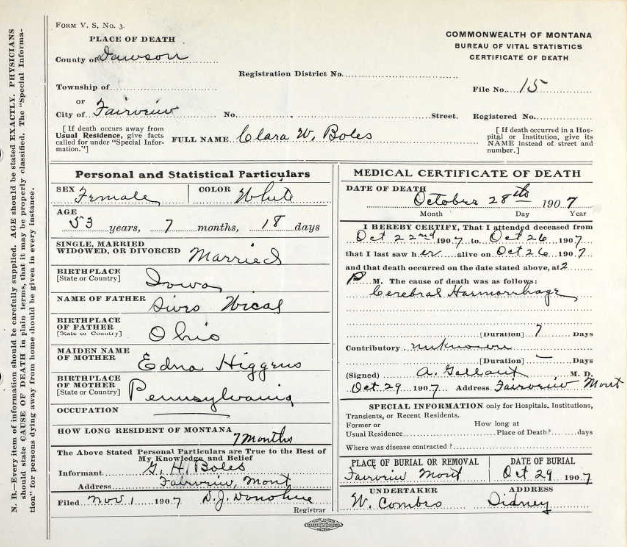 FORM V. S. NO. 3.
PLACE OF DEATH
County of Dawson
Township of
or
City of Fairview No. Street.
[If death occurs away from
Usual Residence, give facts
called for under "Special Infor-
mation."]
FULL NAME Clara W. Boles
COMMONWEALTH OF MONTANA
BUREAU OF VITAL STATISTICS
CERTIFICATE OF DEATH
Registration District No.
File No. 15
Registered No.
[If death occurred in a Hos-
pital or Institution, give its
NAME instead of street and
number.]
Personal and Statistical Particulars
SEX Female COLOR White
AGE
53 years, 7 months, 18 days
SINGLE, MARRIED
WIDOWED, OR DIVORCED Married
BIRTHPLACE
[State or Country] Iowa
NAME OF FATHER
BIRTHPLACE
OF FATHER
[State or Country] Ohio
MAIDEN NAME
OF MOTHER Edna Higgens
BIRTHPLACE
OF MOTHER
[State or Country] Pennsylvania
OCCUPATION
HOW LONG RESIDENT OF MONTANA
7 Months
The Above Stated Personal Particulars are True to the Best of
My Knowledge and Belief
Informant G. H. Boles
Address Fairview, Mont
Filed Nov. 1 1907 D. J. Donohue
Registrar
MEDICAL CERTIFICATE OF DEATH
DATE OF DEATH
October 28th 1907
Month Day Year
I HEREBY CERTIFY, That I attended deceased from
Oct 22nd 1907 to Oct 26 1907
that I last saw her alive on Oct 26 1907
and that death occurred on the date stated above, at 2
P M. The cause of death was as follows:
Cerebral Haemorrhage
[Duration] 7 Days
Contributory unknown
[Duration] – Days
(Signed) A. M. D.
Oct 29 1907 Address Fairview Mont
SPECIAL INFORMATION only for Hospitals, Institutions,
Transients, or Recent Residents.
Former or
Usual Residence
How long at
Place of Death? days
Where was disease contracted?
PLACE OF BURIAL OR REMOVAL
Fairview Mont
DATE OF BURIAL
Oct 29 1907
UNDERTAKER
W. Combes
ADDRESS
Sidney
N. B.—Every item of information should be carefully supplied. AGE should be stated EXACTLY. PHYSICIANS
should state CAUSE OF DEATH in plain terms, that it may be properly classified. The "Special Informa-
tion" for persons dying away from home should be given in every instance.